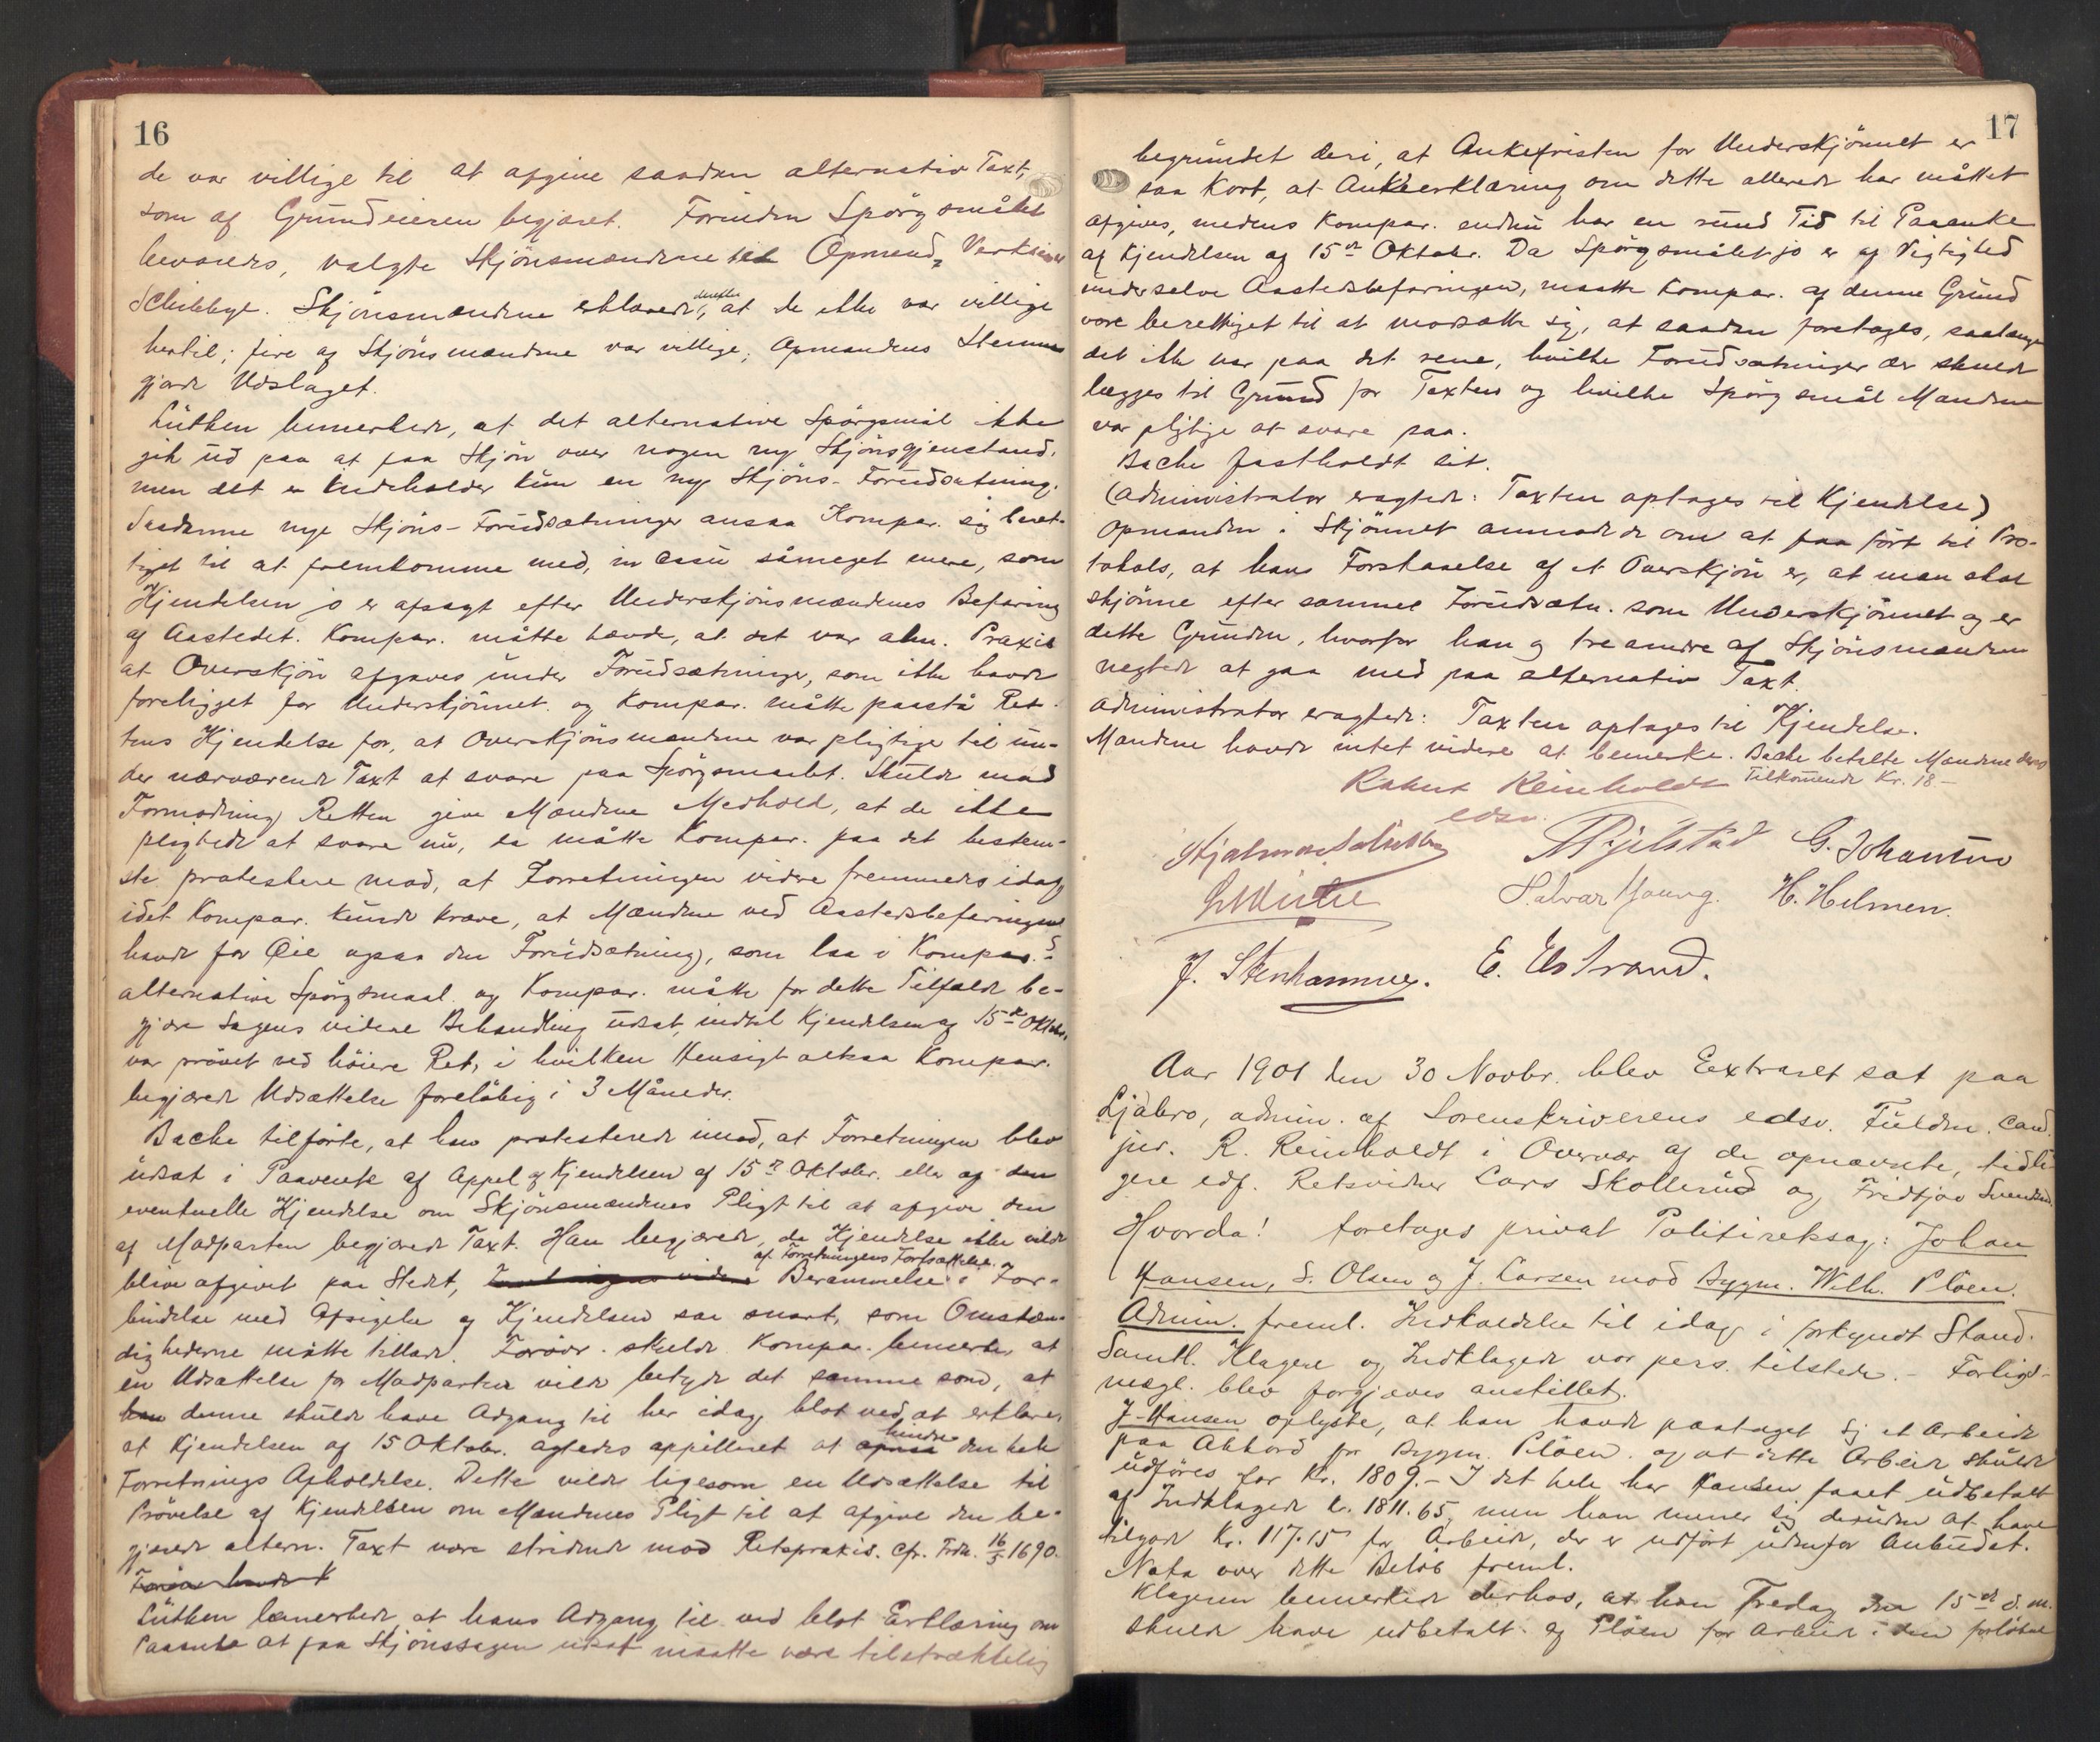 16
de var villige til at afgive saadan alternativ Taxt,
som af Grundeieren begjæret. Forinden Spörgsmålet
besvaredes, valgte Skjönsmændene til Opmand, Verkseier
Schibbye. Skjönsmændene erklærede derefter, at de ikke var villige
hertil; fire af Skjönsmændene var villige, Opmandens Stemme
gjorde Udslaget.
Lütken bemerkede, at det alternative Spörgsmål ikke
gik ud paa at faa Skjön over nogen ny Skjönsgjenstand,
men det indeholder kun en ny Skjöns-Forudsætning.
Saadanne nye Skjöns-Forudsætninger ansaa Kompar. sig beret-
tiget til at fremkomme med, in casu såmeget mere, som
Kjendelsen jo er afsagt efter Underskjönsmændenes Befaring
af Aastedet. Kompar. måtte hævde, at det var alm. Praxis
at Overskjön afgaves under Forudsætninger, som ikke havde
foreligget for Underskjönnet og Kompar. måtte paastå Ret-
tens Kjendelse for, at Overskjönsmændene var pligtige til un-
der nærværende Taxt at svare paa Spörgsmaalet. Skulde mod
Formodning Retten give Mændene Medhold, at de ikke
pligtede at svare nu, da måtte Kompar. paa det bestem-
te protestere mod, at Forretningen videre fremmedes idag,
idet Kompar. kunde kræve, at Mændene ved Aastedsbefaringen
havde for Öie ogsaa den Forudsætning, som laa i Kompar.s
alternative Spörgsmaal og Kompar. måtte for dette Tilfælde be-
gjære Sagens videre Behandling udsat, indtil Kjendelsen af 15de Oktober.
var prövet ved höiere Ret, i hvilken Hensigt altsaa Kompar.
begjærede Udsættelse foreløbig i 3 Måneder.
Bache tilförte, at han protesterede imod, at Forretningen blev
udsat i Paavente af Appel af Kjendelsen af 15de Oktober. eller af den
eventuelle Kjendelse om Skjönsmændenes Pligt til at afgive den
af Modparten begjærede Taxt. Han begjærede, da Kjendelse ikke vilde
af Forretningens Fortsættelse
blive afgivet paa Stedet, Berammelse i For-
bindelse med Afsigelse af Kjendelsen saa snart, som Omstæn-
dighederne måtte tillade. Forövr. skulde Kompar. bemerke, at
en Udsættelse for Modparten vilde betyde det samme som, at
han denne skulde have Adgang til her idag blot ved at erklære,
at Kjendelsen af 15 Oktober. agtedes appelleret at hindre den hele
Forretnings Afholdelse. Dette vilde ligesom en Udsættelse til
Prövelse af Kjendelsen om Mændenes Pligt til at afgive den be-
gjærede altern. Taxt være stridende mod Retspraxis. Cfr. Frdn. 16/5 1690.
Lütken bemerkede at hans Adgang til ved blot Erklæring om
Paaanke at faa Skjönssagen udsat maatte være tilstrækkelig
17
begrundet deri, at Ankefristen for Underskjönnet er
saa Kort, at Ankeerklæring om dette allerede har måttet
afgives, medens Kompar. endnu har en rund Tid til Paaanke
af Kjendelsen af 15de Oktober. Da Spörgsmålet jo er af Vigtighed
under selve Aastedsbefaringen, maatte Kompar. af denne Grund
være berettiget til at modsætte sig, at saadan foretages, saalænge
det ikke var paa det rene, hvilke Forudsætninger der skulde
lægges til Grund for Taxten og hvilke Spörgsmål Mændene
var pligtige at svare paa.
Bache fastholdt sit.
(Administrator eragtede: Taxten optages til Kjendelse)
Opmanden i Skjönnet anmodede om at faa fört til Pro-
tokols, at hans Forstaaelse af et Overskjön er, at man skal
skjönne efter samme Forudsætn. som Underskjönnet og er
dette Grunden, hvorfor han og tre andre af Skjönsmændene
negtede at gaa med paa alternativ Taxt.
Administrator eragtede: Taxten optages til Kjendelse.
Mændene havde intet videre at bemerke. Bache betalte Mændene deres
Tilkomende Kr. 18.-
Reinholdt
edsv.
G. Johansen
Halvar Young. H. Helmen.
J. Stenhammer. E. Ekstrand.
Aar 1901 den 30 Novbr. blev Extraret sat paa
Ljabro, admin. af Sorenskriverens edsv. Fuldm. Cand.
jur. R. Reinholdt i Overvær af de opnævnte, tidli-
gere edf. Retsvidner Lars Skollerud og Fridtjov Svendsen.
Hvorda! foretages privat Politiretssag: Johan
Hansen, S. Olsen og J. Larsen mod Bygm. Wilh. Plöen.
Admin. freml. Indkaldelse til idag i forkyndt Stand.
Samtl. Klagere og Indklagede var pers. tilstede. - Forligs-
mægl. blev forgjæves anstillet.
J. Hansen oplyste, at han havde paataget sig et Arbeide
paa Akkord for Bygm. Plöen og at dette Arbeide skulde
udföres for Kr. 1809.- I det hele har Hansen faaet udbetalt
af Indklagede kr. 1811.65, men han mener sig desuden at have
tilgode Kr. 117.15 for Arbeide, der er udfört udenfor Anbudet.
Nota over dette Belöb freml.
Klageren bemerkede derhos, at han Fredag den 15de d.m.
skulde have udbetalt af Plöen for Arbeide i den forlöbne